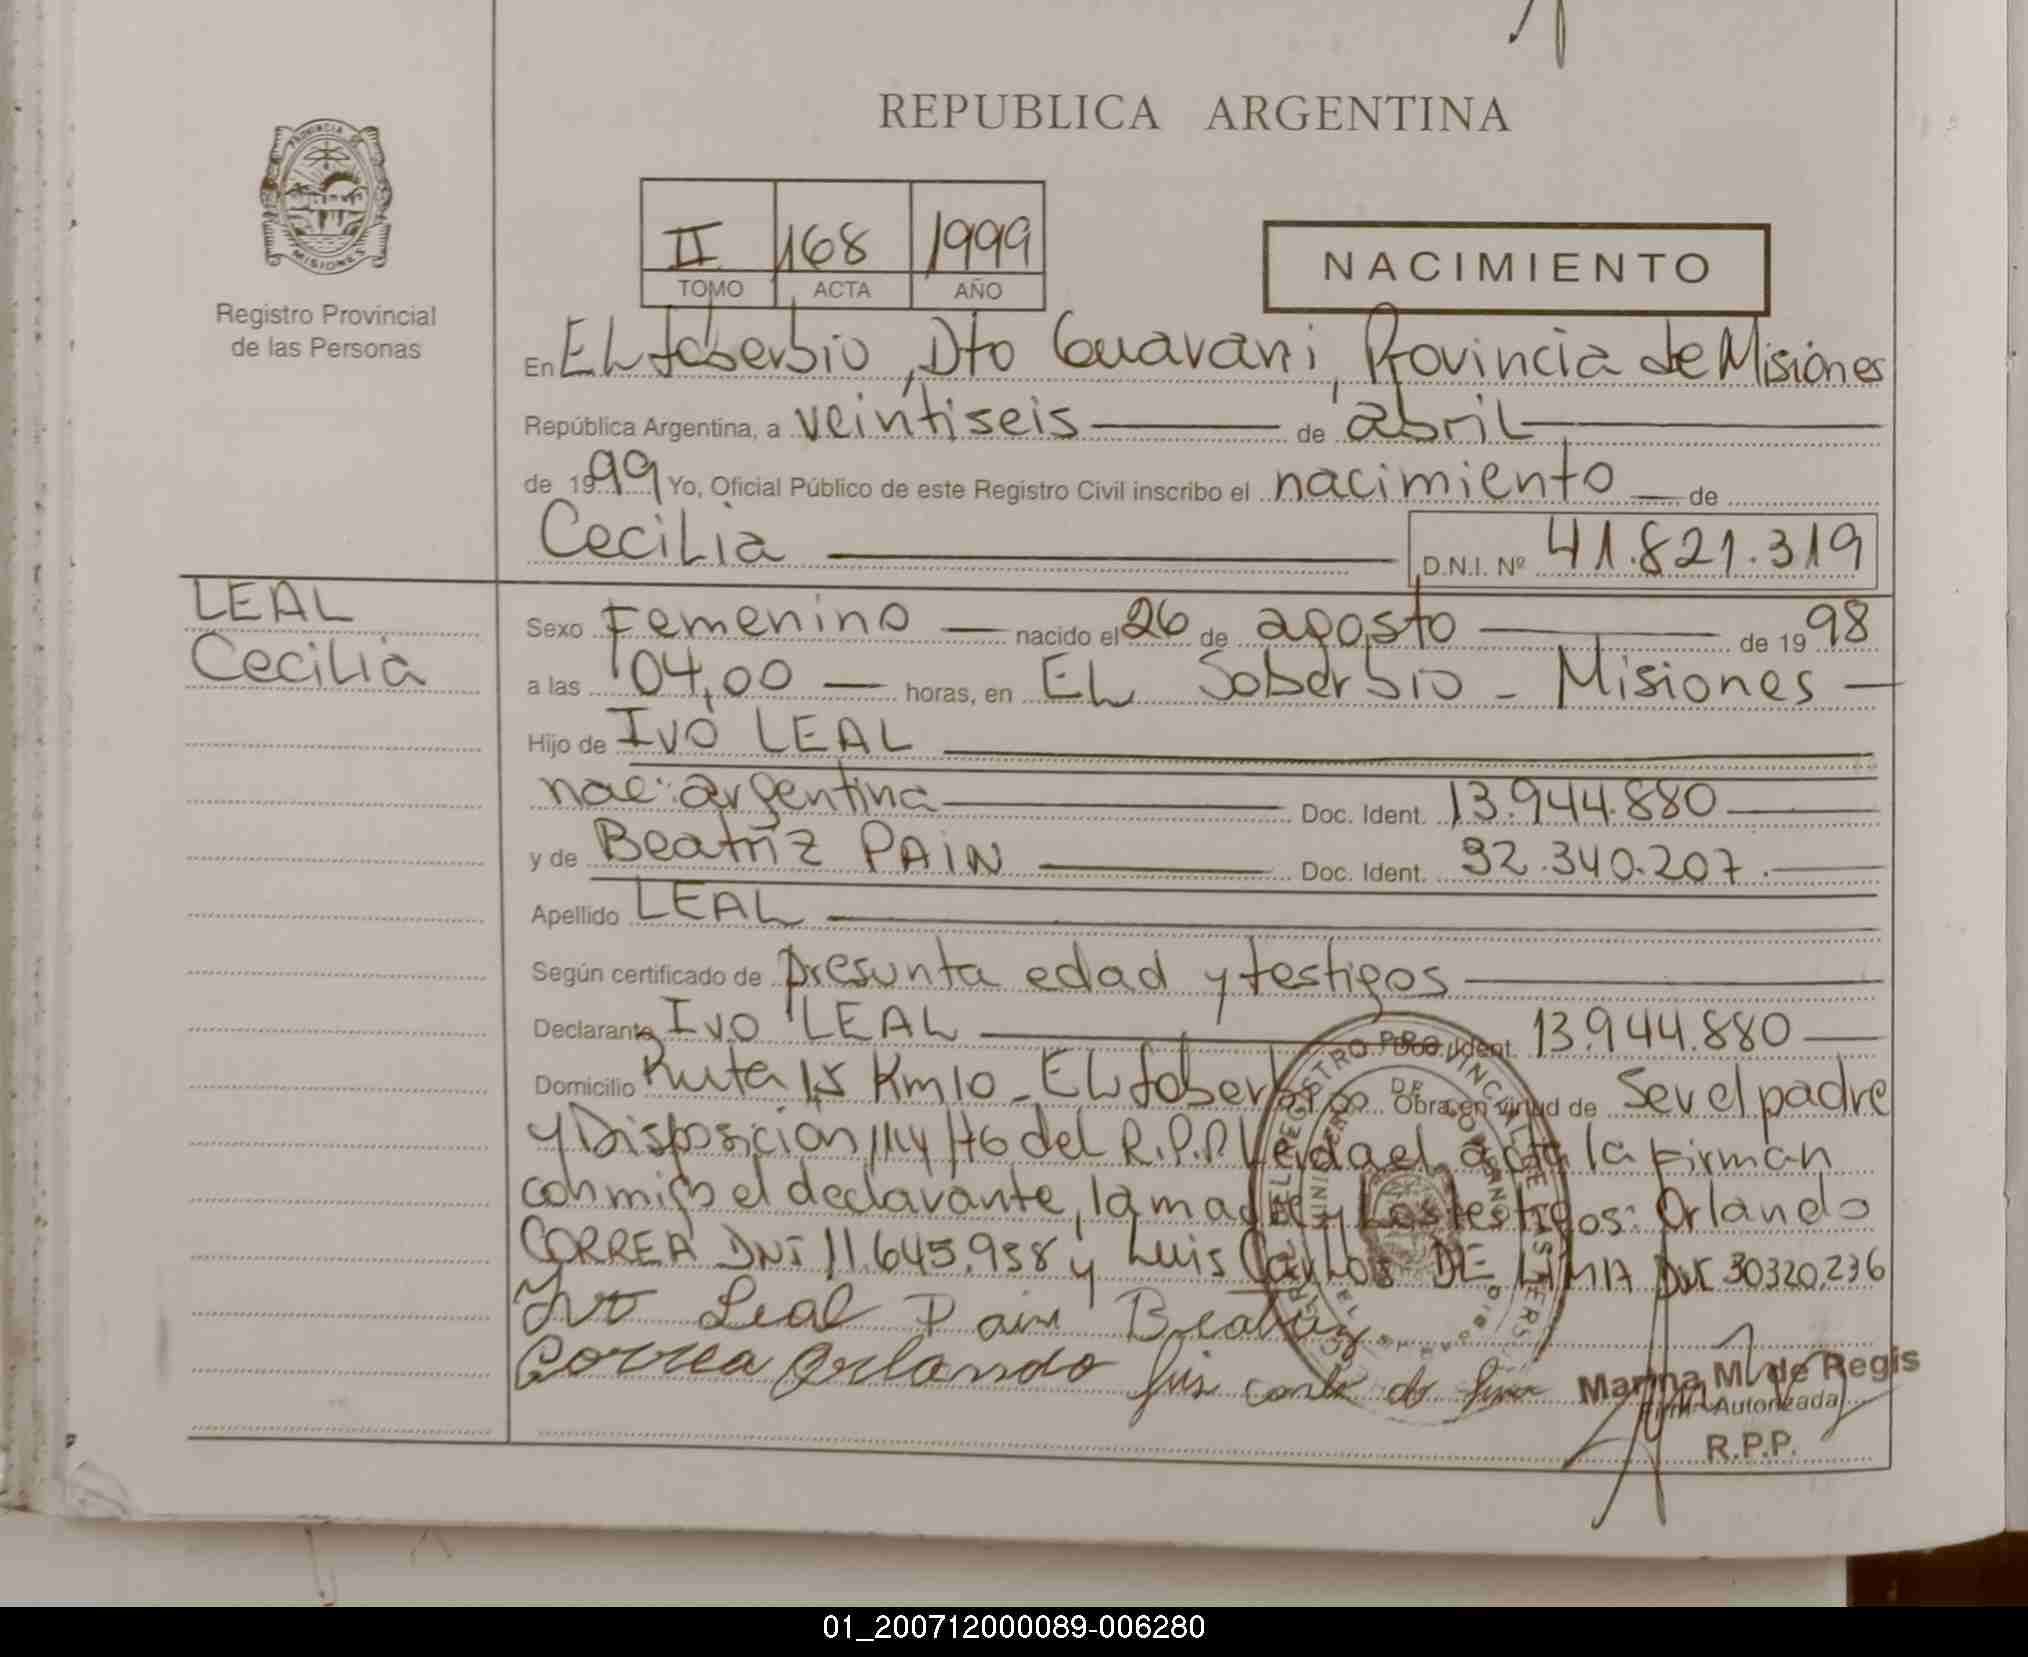 REPUBLICA ARGENTINA
PROVINCIA DE
MISIONES
Registro Provincial
de las Personas
II 168 1999
TOMO ACTA AÑO
NACIMIENTO
En EL Soberbio, Dto Guarani, Provincia de Misiones
República Argentina, a veintiseis de abril
de 1999 Yo, Oficial Público de este Registro Civil inscribo el nacimiento de
Cecilia D.N.I. Nº 41.821.319
LEAL
Cecilia
Sexo Femenino nacido el 26 de agosto de 1998
a las 04,00 horas, en EL Soberbio - Misiones
Hijo de Ivo LEAL
nac: argentina Doc. Ident. 13.944.880
y de Beatriz PAIN Doc. Ident. 92.340.207
Apellido LEAL
Según certificado de presunta edad y testigos
Declarante Ivo LEAL Doc. Ident. 13.944.880
Domicilio Ruta 15 Km 10 - EL Soberbio Obra en virtud de Ser el padre
y Disposición del R.P.P. Leida el acta la Firman
conmigo el declarante, la madre y Los testigos: Orlando
CORREA DNI 11.645.958 y Luis Carlos DE LIMA DNI 30320,236
Ivo Leal Pain Beatriz
Correa Orlando Luis
Marina M. de Regis
Firma Autorizada
R.P.P.
01_200712000089-006280